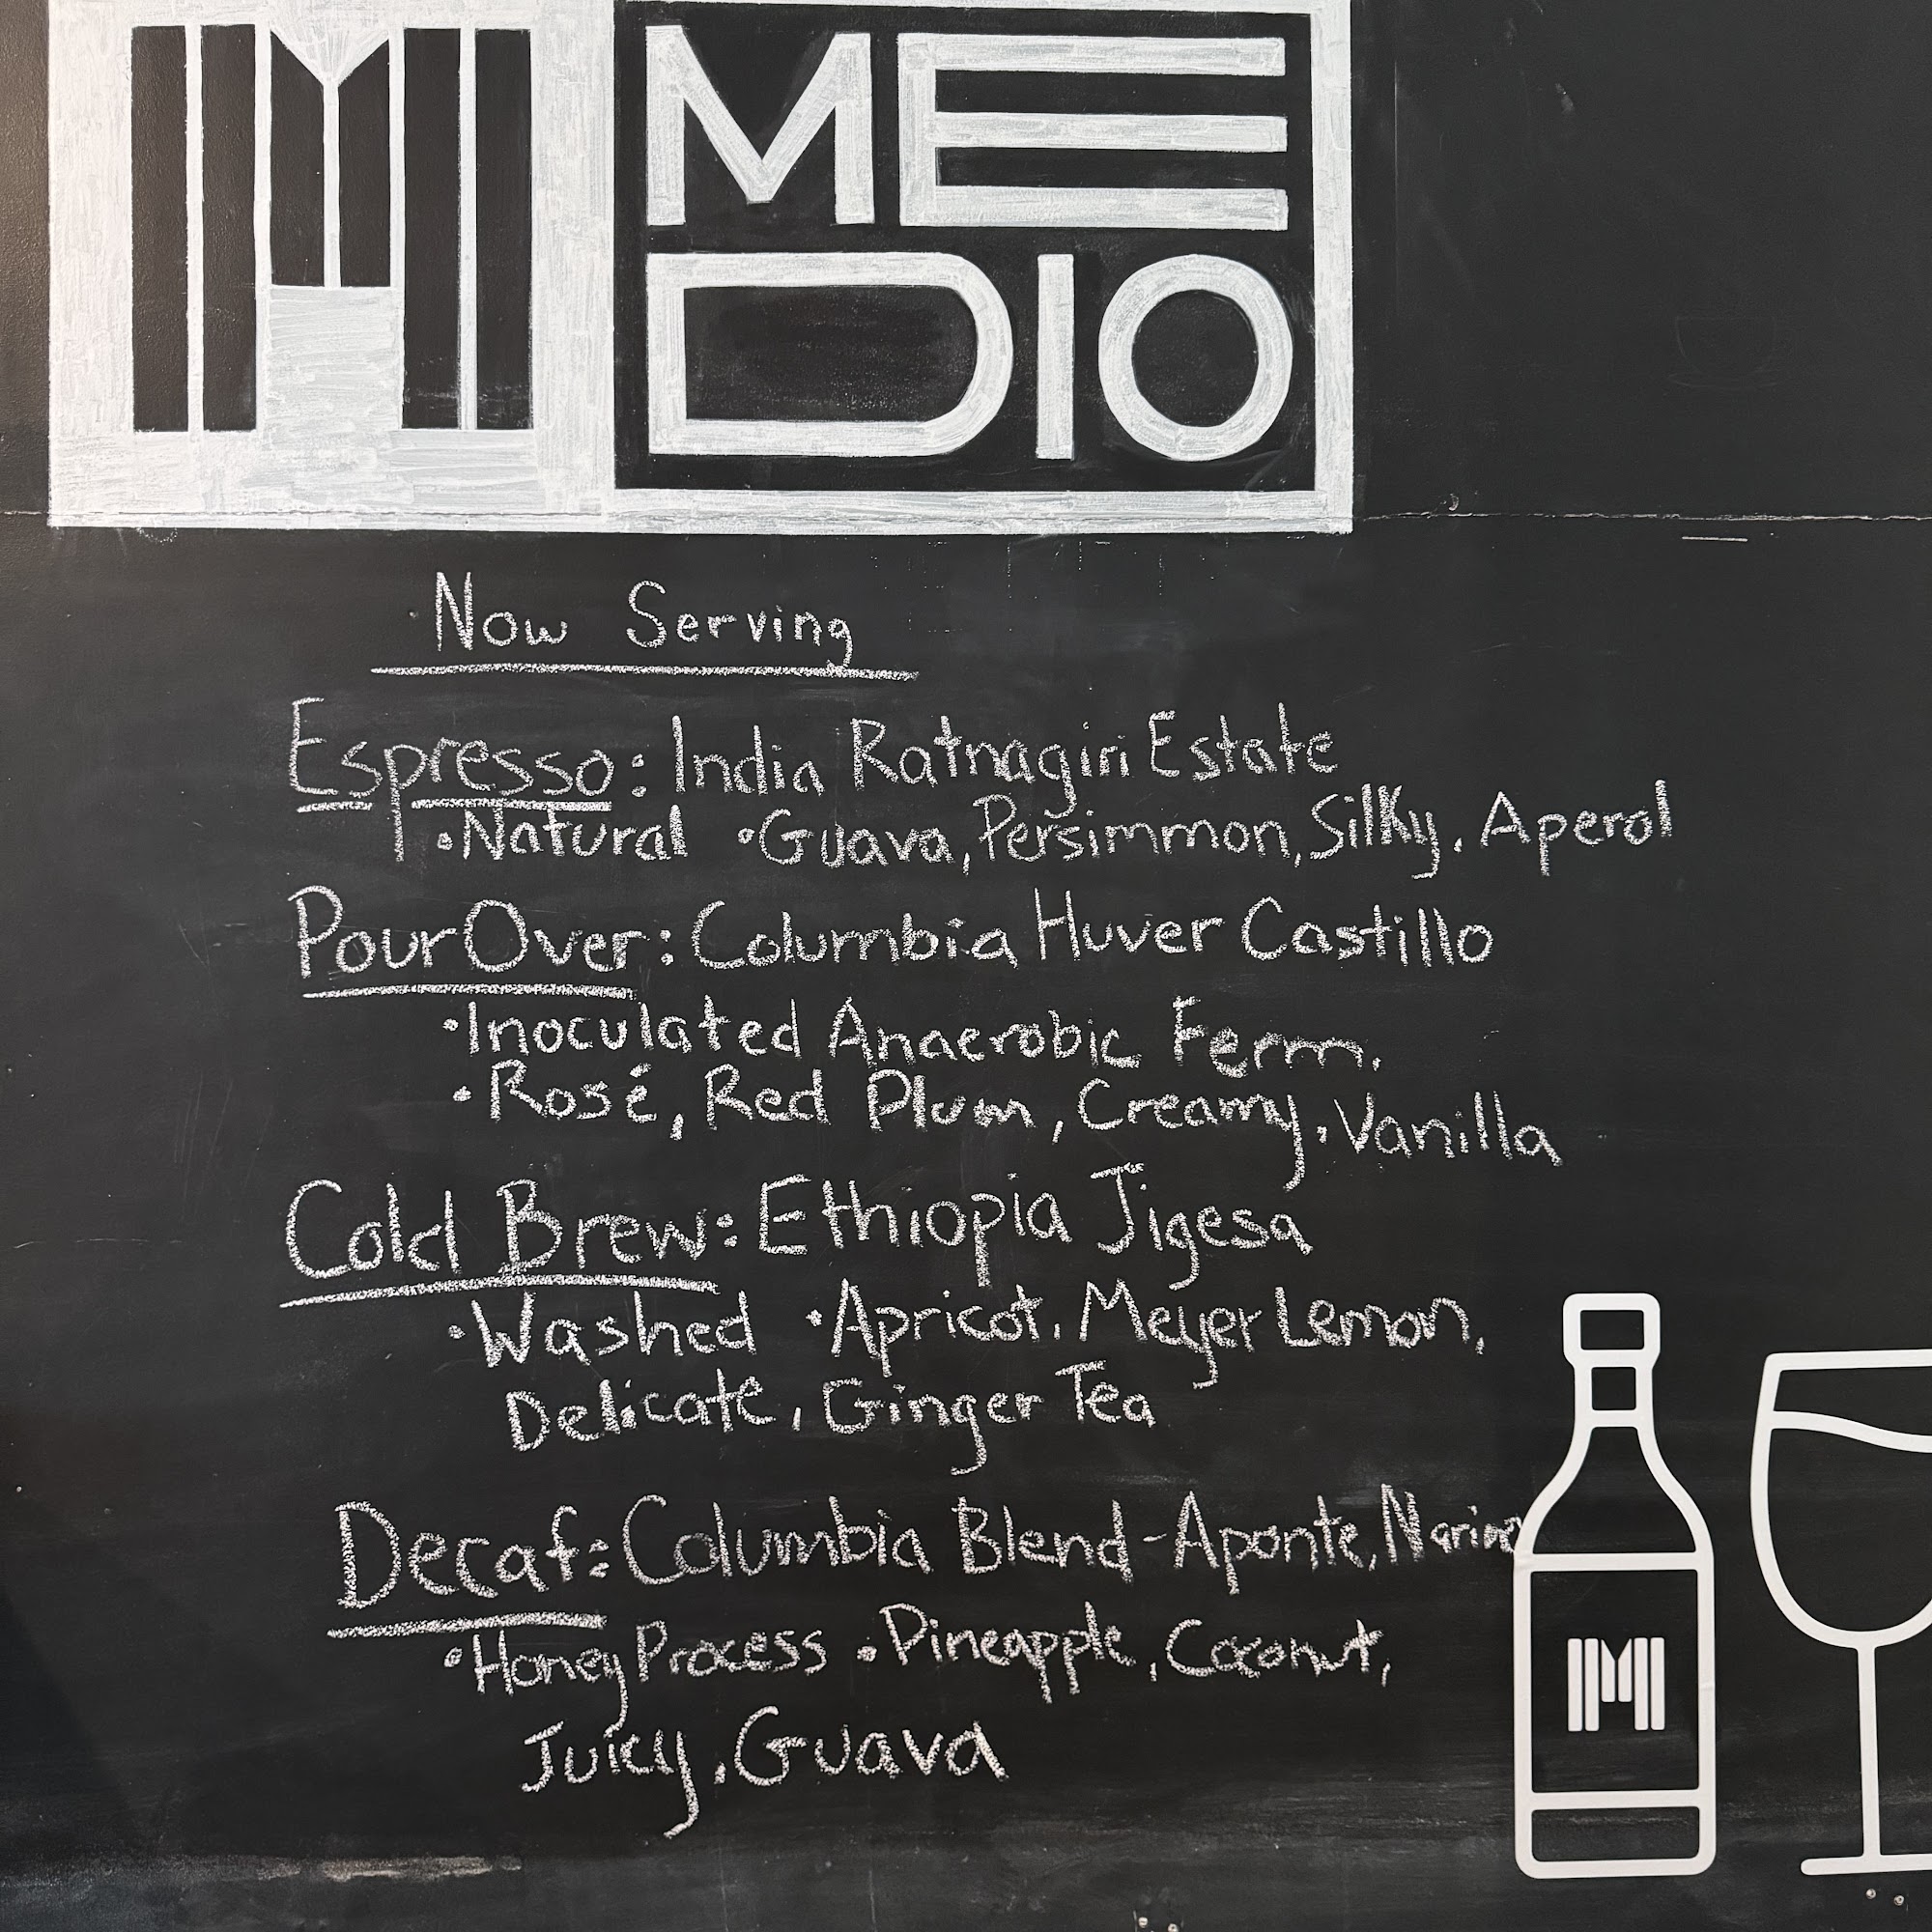 ME
DIO
Now Serving
Espresso: India Ratnagiri Estate
•Natural •Guava, Persimmon, Silky, Aperol
Pour Over: Columbia Huver Castillo
•Inoculated Anaerobic Ferm.
•Rosé, Red Plum, Creamy, Vanilla
Cold Brew: Ethiopia Jigesa
•Washed •Apricot, Meyer Lemon,
Delicate, Ginger Tea
Decaf: Columbia Blend - Aponte, Narino
•Honey Process •Pineapple, Coconut,
Juicy, Guava
M